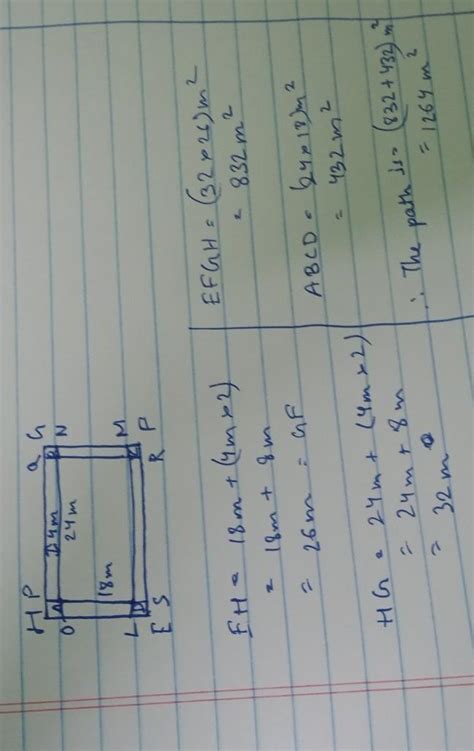 H P Q G
O N
4m
24m
18m
L M
E S R P
EH = 18m + (4m × 2)
= 18m + 8m
= 26m = GF
HG = 24m + (4m × 2)
= 24m + 8m
= 32m
EFGH = (32 × 26) m²
= 832 m²
ABCD = (24 × 18) m²
= 432 m²
∴ The path is = (832 + 432) m²
= 1264 m²